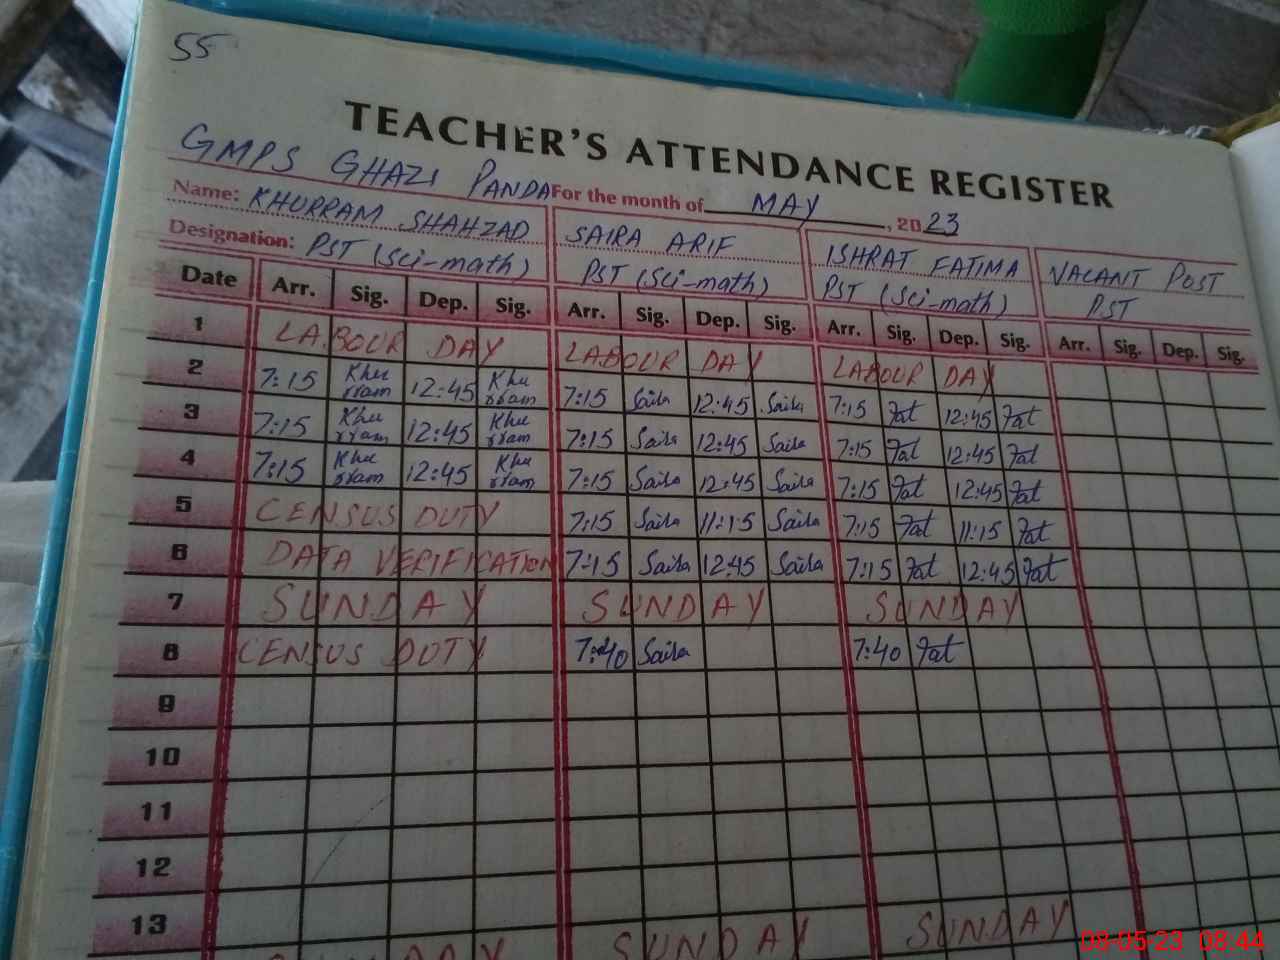 55
TEACHER'S ATTENDANCE REGISTER
GMPS GHAZI PANDA For the month of MAY, 2023
Name: KHURRAM SHAHZAD SAIRA ARIF ISHRAT FATIMA VACANT POST
Designation: PST (Sci-math) PST (Sci-math) PST (Sci-math) PST
Date Arr. Sig. Dep. Sig. Arr. Sig. Dep. Sig. Arr. Sig. Dep. Sig. Arr. Sig. Dep. Sig.
1 LABOUR DAY LABOUR DAY LABOUR DAY
2 7:15 Khurram 12:45 Khurram 7:15 Saira 12:45 Saira 7:15 Fat 12:45 Fat
3 7:15 Khurram 12:45 Khurram 7:15 Saira 12:45 Saira 7:15 Fat 12:45 Fat
4 7:15 Khurram 12:45 Khurram 7:15 Saira 12:45 Saira 7:15 Fat 12:45 Fat
5 CENSUS DUTY 7:15 Saira 11:15 Saira 7:15 Fat 11:15 Fat
6 DATA VERIFICATION 7:15 Saira 12:45 Saira 7:15 Fat 12:45 Fat
7 SUNDAY SUNDAY SUNDAY
8 CENSUS DUTY 7:40 Saira 7:40 Fat
9
10
11
12
13
SUNDAY SUNDAY
08-05-23 08:44